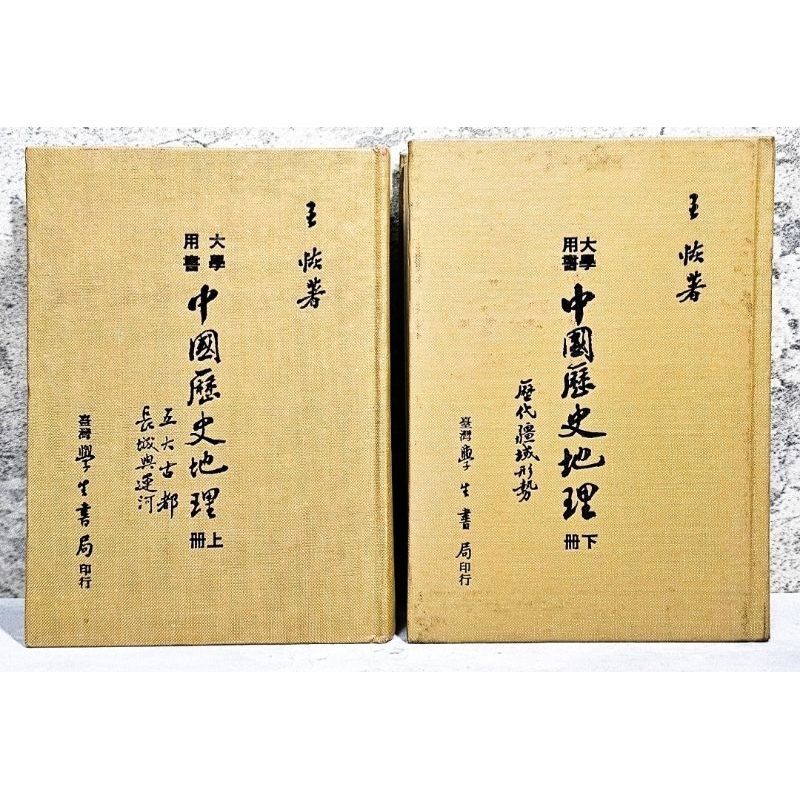 王恢著
大學用書
中國歷史地理
上冊
五大古都
長城與運河
臺灣學生書局印行
王恢著
大學用書
中國歷史地理
下冊
歷代疆域形勢
臺灣學生書局印行